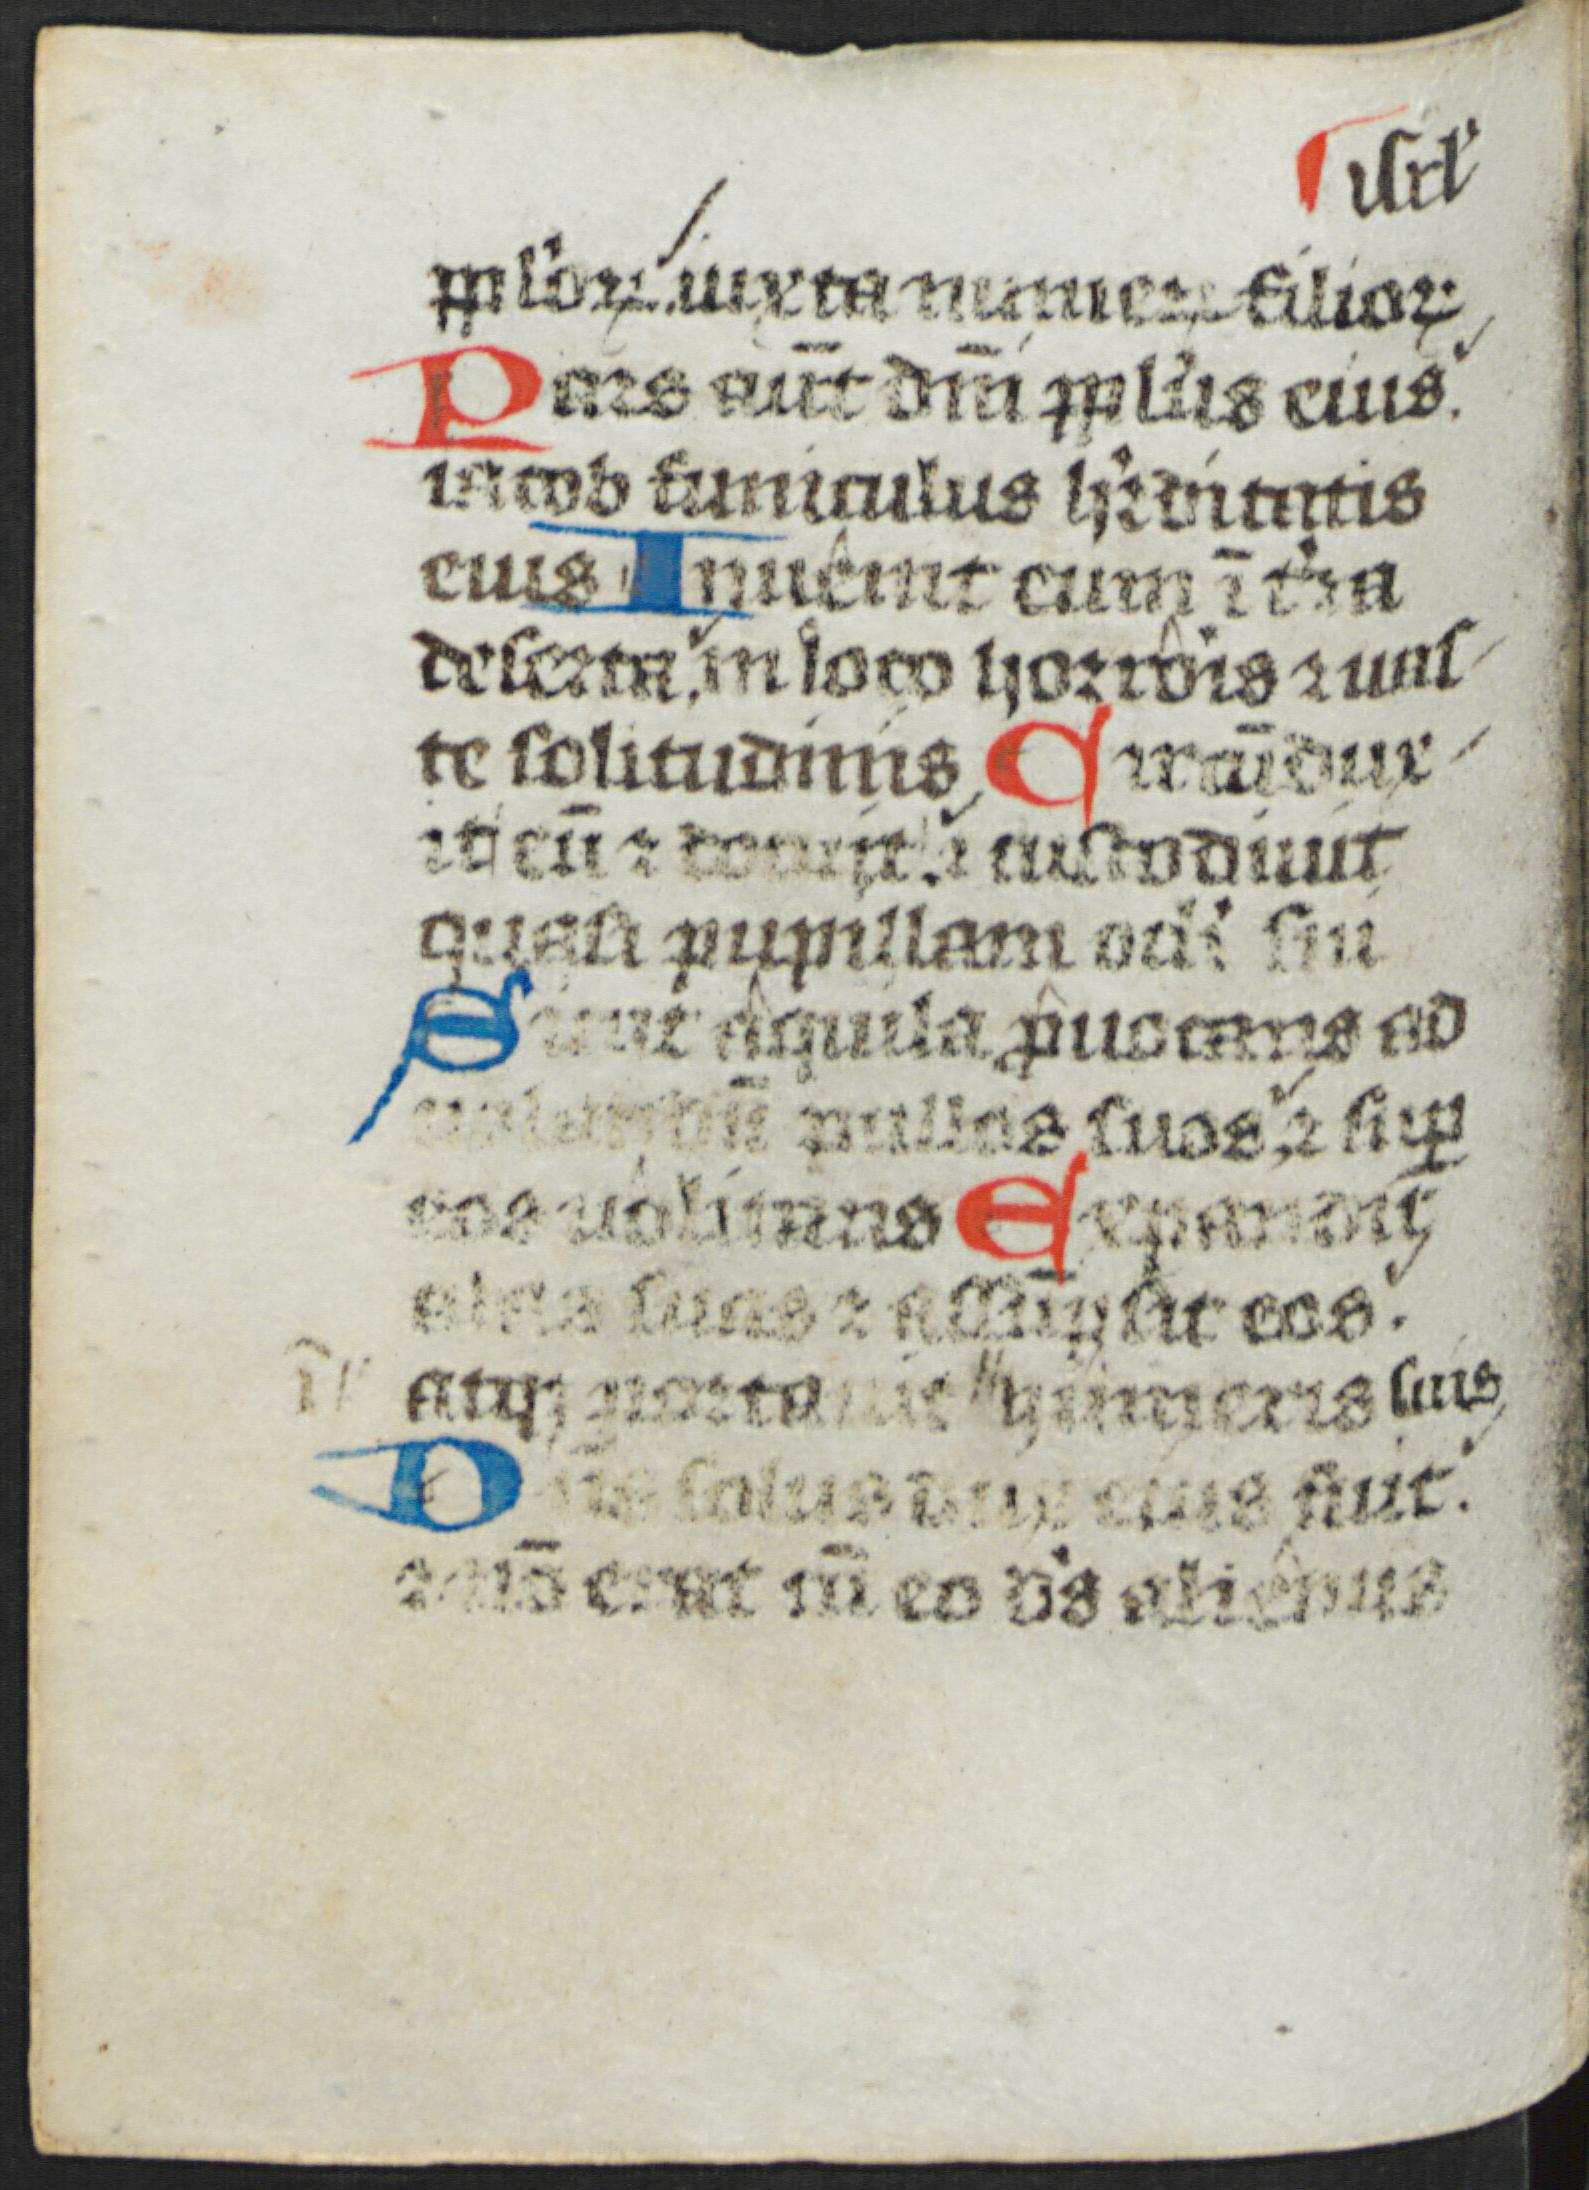 isrl'
pploꝝ. iuxta numeꝝ filioꝝ
Pars aūt dn̄i ppl'us eius.
iacob funiculus hr̾ditatis
eius Inuenit eum ī t̾ra
deserta, in loco horroris ⁊ uas
te solitudinis Circūdux
it eū ⁊ docuit. ⁊ custodiuit
quasi pupillam ocl'i sui
Sicut aquila ꝓuocans ad
uolandū pullos suos, ⁊ suꝑ
eos uolitans Expandit
alas suas ⁊ assūpsit eos.
ī atqꝫ portauit humeris suis
Dn̄s solus dux eius fuit.
⁊ nō erat cū eo d's alienus